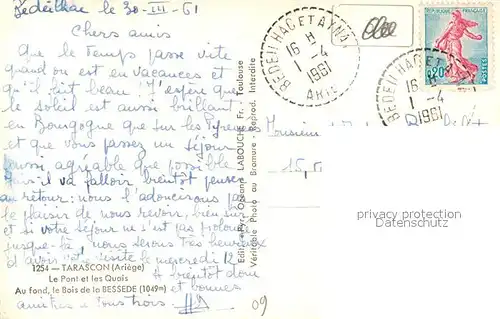 Bédeilhac le 30-III-61
Chers amis
Que le temps passe vite
quand on est en vacances et
qu'il fait beau ! J'espère que
le soleil est aussi brillant
en Bourgogne que sur les Pyrénées
et que vous passez un séjour
aussi agréable que possible
Mais il va falloir bientôt penser
au retour : nous l'adoucirons par
le plaisir de nous revoir, bien sûr
et si votre séjour ne s'est pas prolongé
jusque-là, nous serons très heureux
d'avoir votre visite le mercredi 12
A bientôt donc
et bonnes
amitiés à tous trois
1254 — TARASCON (Ariège)
Le Pont et les Quais
Au fond, le Bois de la BESSEDE (1049m)
LABOUCHE Fr. - Toulouse
Véritable Photo au Bromure - Reprod. Interdite
BEDEILHAC ET AYNAT
16 H
1 - 4
1961
ARIEGE
BEDEILHAC ET
16 H
1 - 4
1961
REPUBLIQUE FRANÇAISE
0,20
POSTES
Monsieur
privacy protection
Datenschutz
09